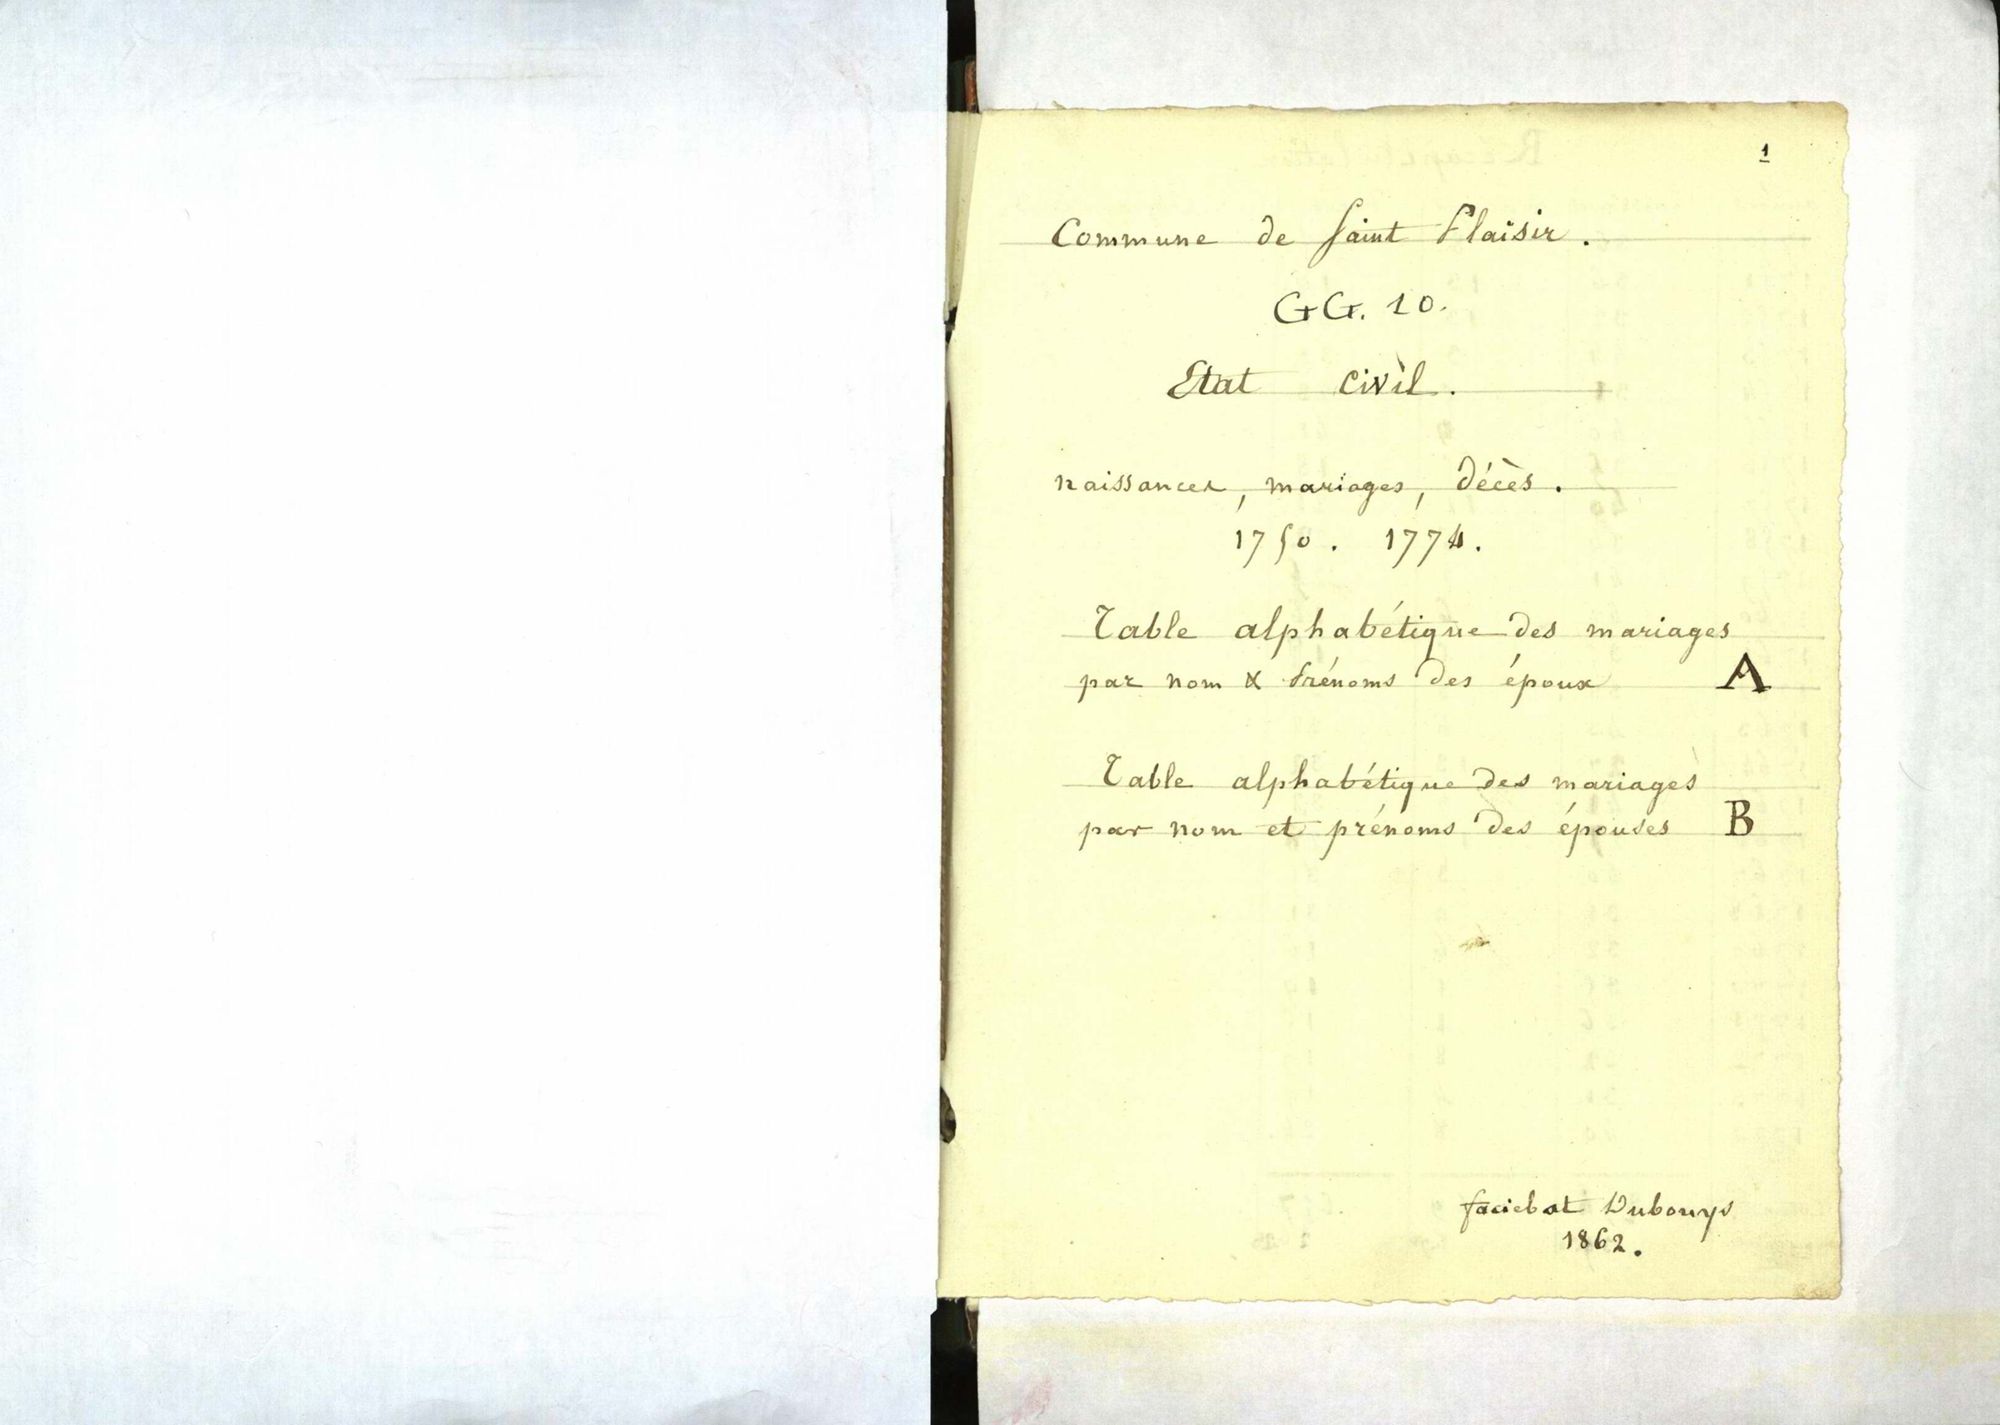 1
Commune de Saint Plaisir.
GG. 10.
Etat civil.
naissances, mariages, décès.
1750. 1774.
Table alphabétique des mariages
par nom & Prénoms des époux A
Table alphabétique des mariages
par nom et prénoms des épouses B
faciebat Dubouys
1862.